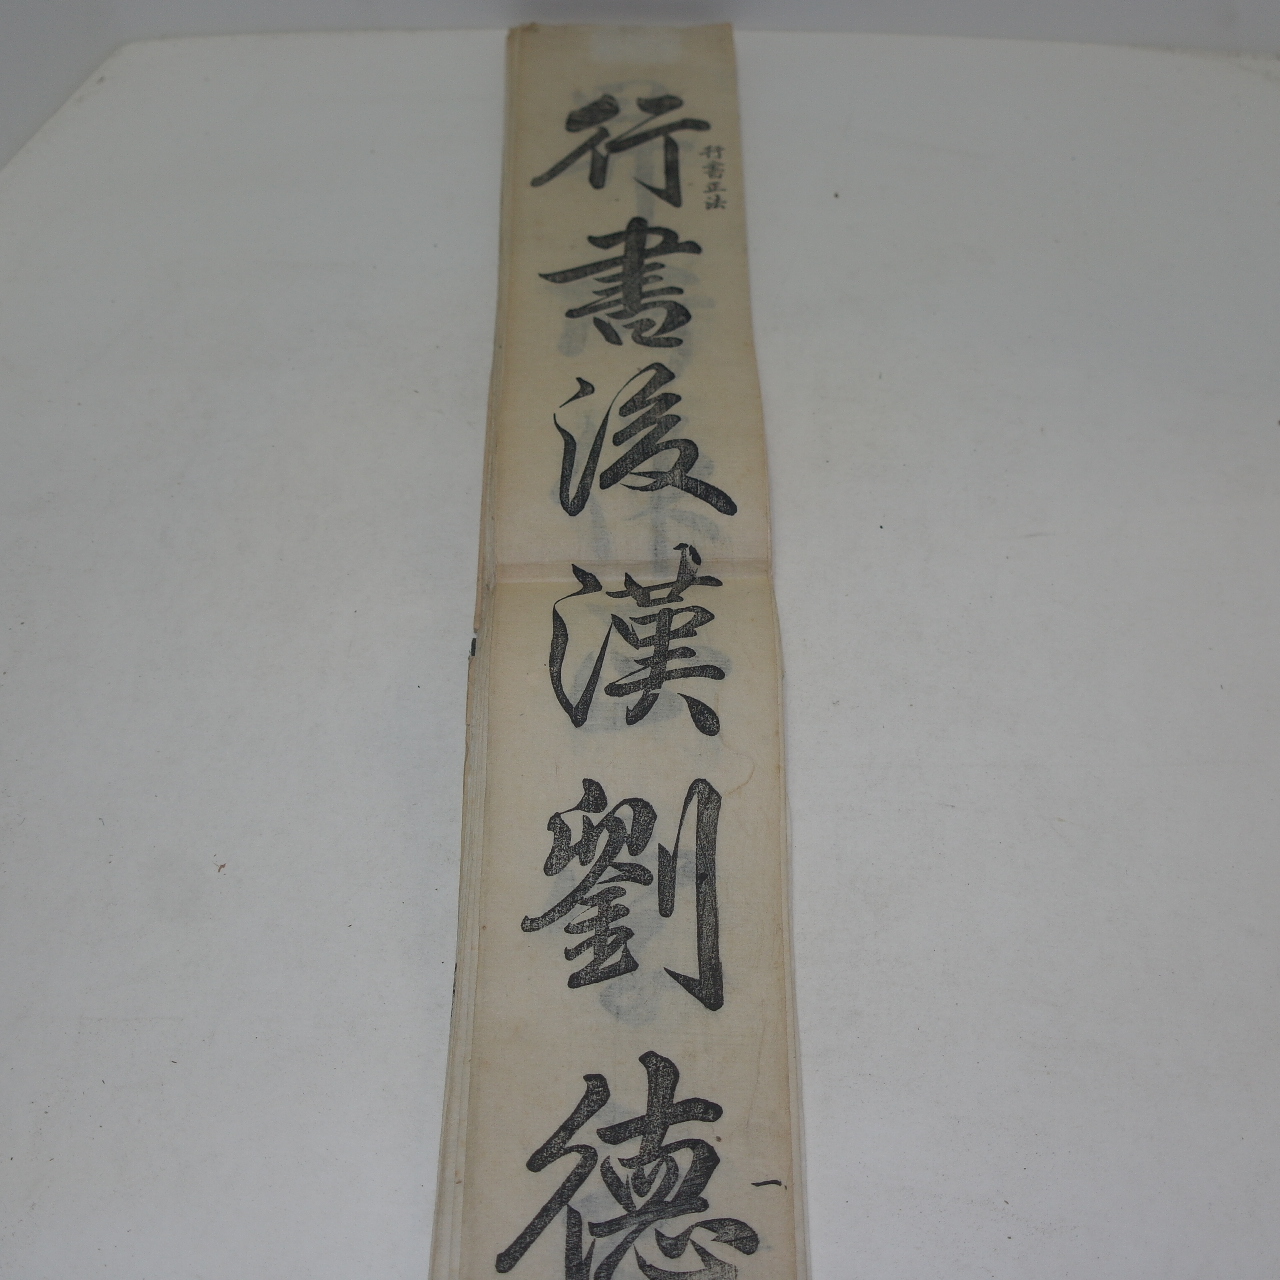 行書正法
行書後漢劉德
一